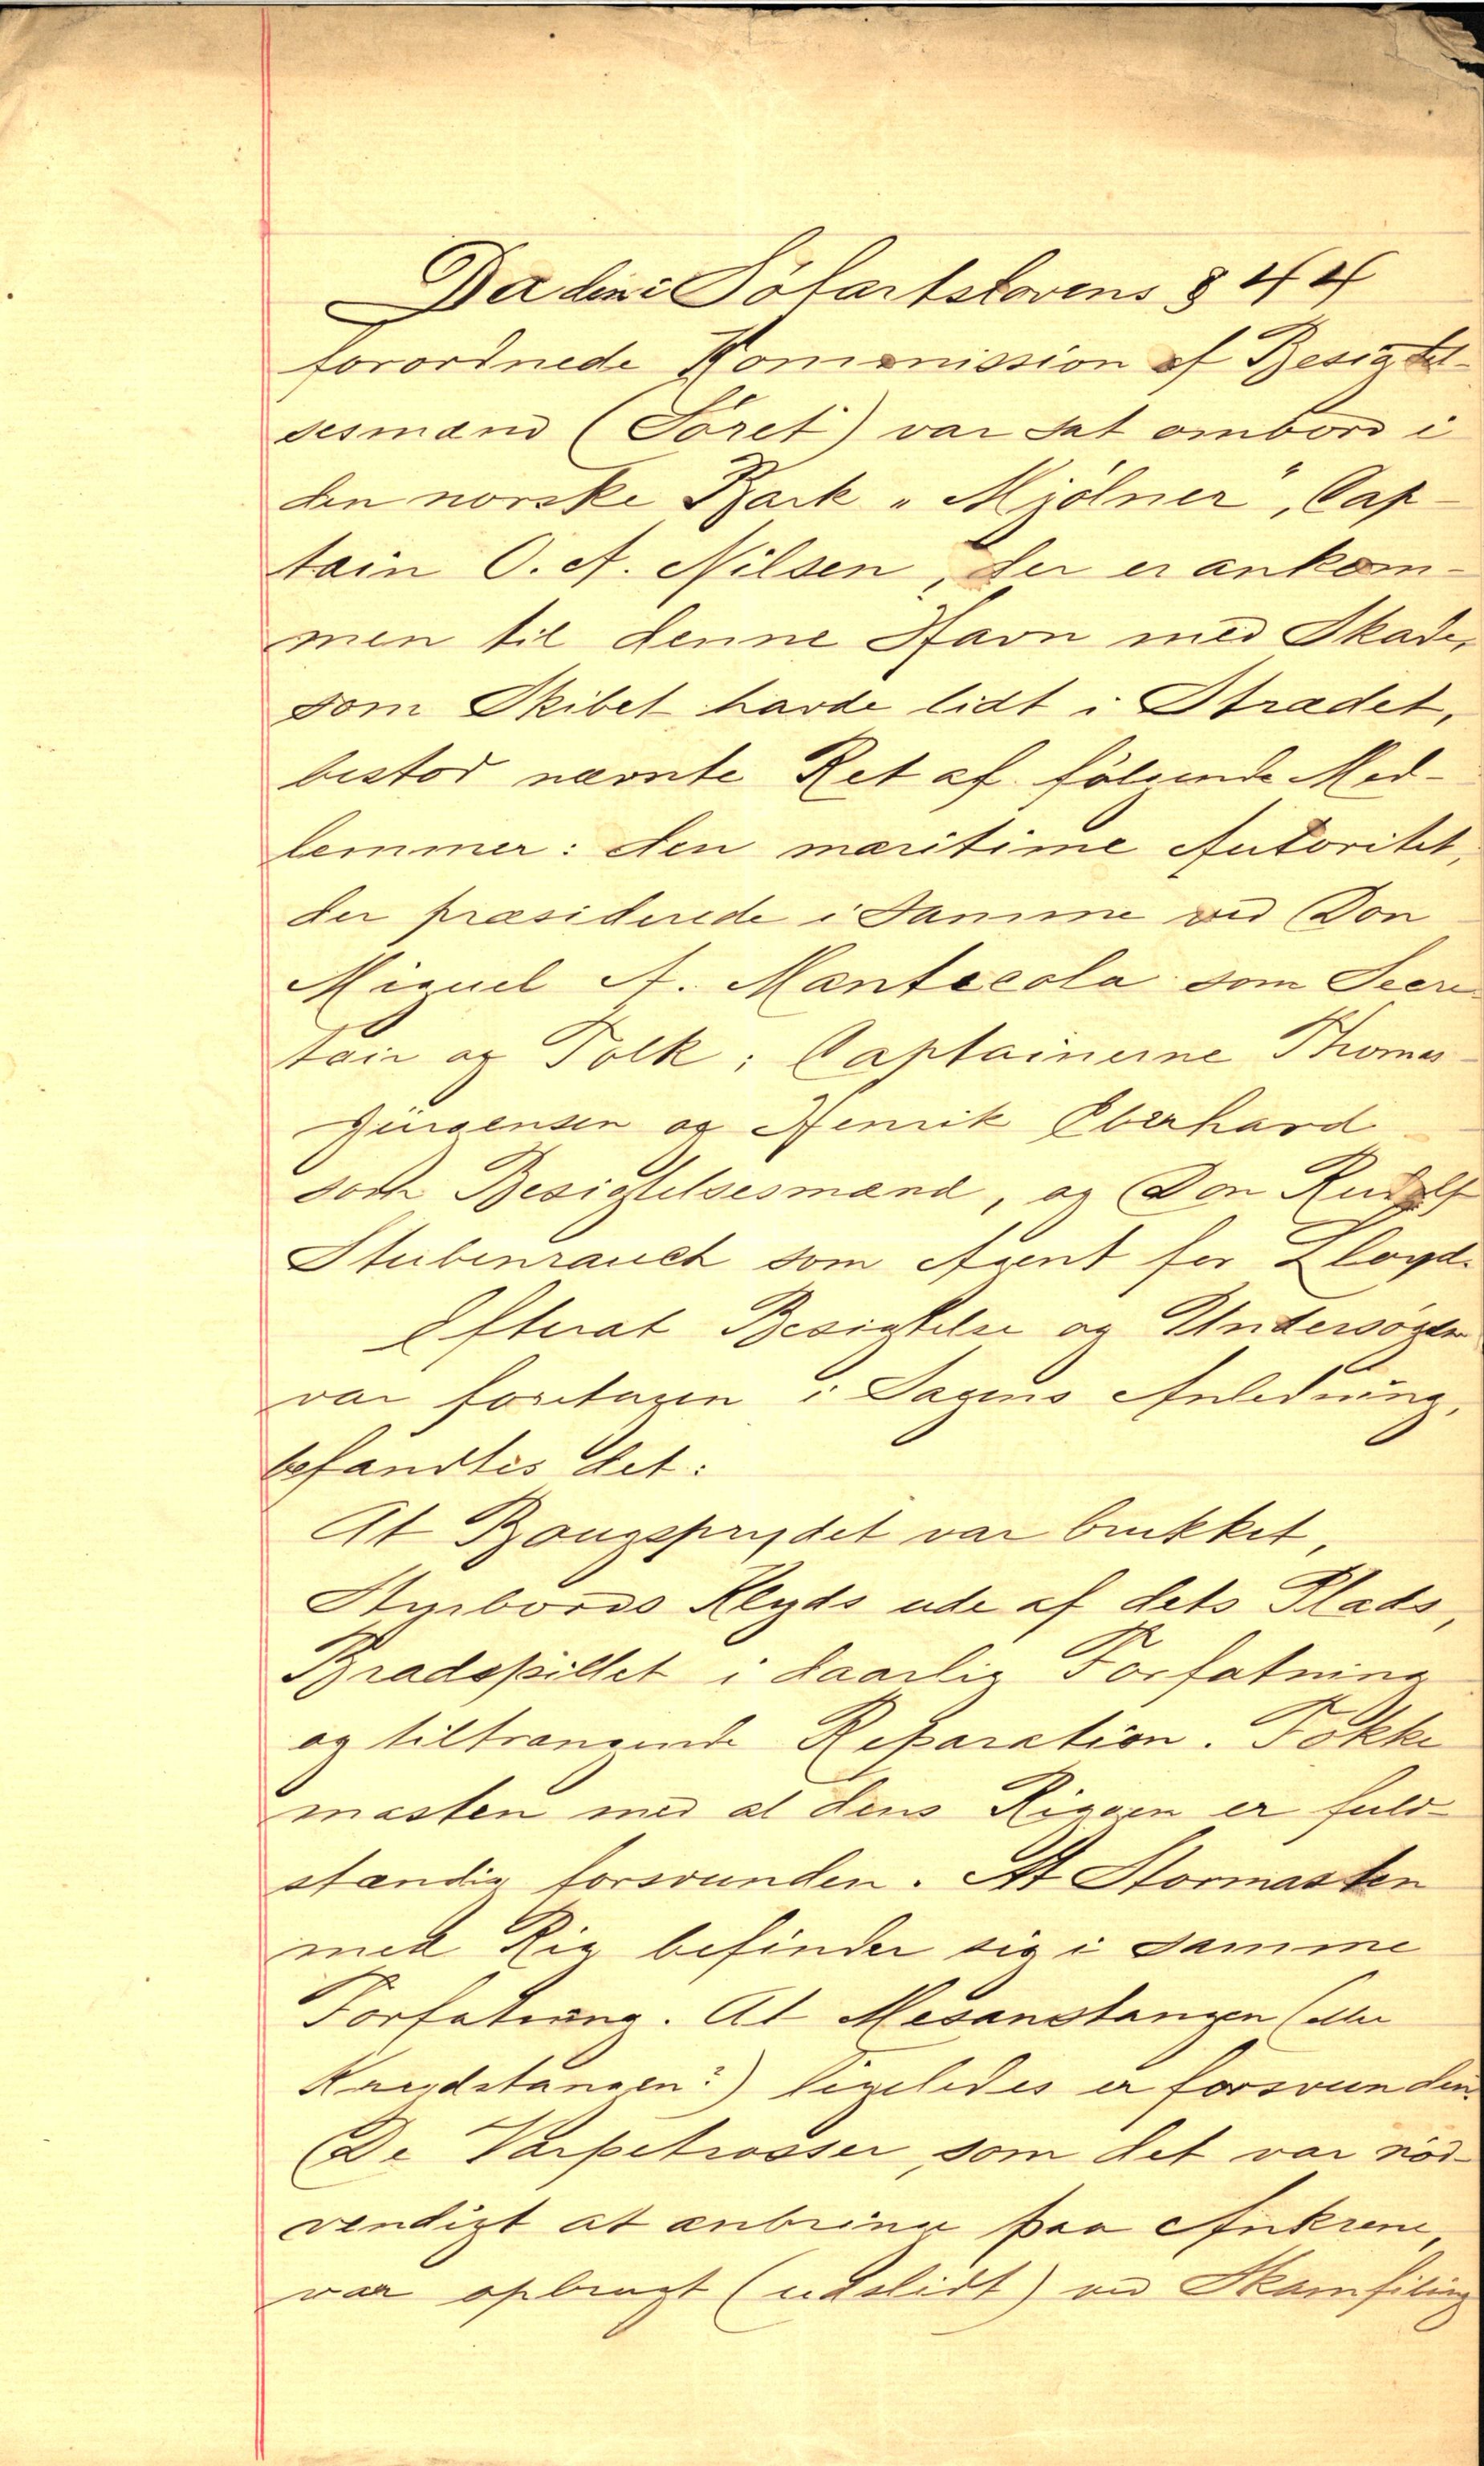 Da den i Söfartslovens § 44
forordnede Kommission af Besigtel-
sesmænd (Söret) var sat ombord i
den norske Bark „Mjölner", Cap-
tain O. A. Nilsen, der er ankom-
men til denne Havn med Skade,
som Skibet havde lidt i Strædet,
bestod nævnte Ret af følgende Med-
lemmer: den maritime Autoritet,
der præsiderede i Samme ved Don
Miguel A. Mantecola som Secre-
tair og Tolk; Captainerne Thomas
Jürgensen og Henrik Eberhard
som Besigtelsesmænd, og Don Rudolf
Stubenrauch som Agent for Lloyd.
Efterat Besigtelse og Undersögelse
var foretagen i Sagens Anledning,
befandtes det:
At Bougsprydet var brukket,
Styrbords Klyds ude af dets Plads,
Bradspillet i daarlig Forfatning
og tiltrængende Reparation. Fokke
masten med al dens Riggen er fuld-
stændig forsvunden. At Stormasten
med Rig befinder sig i samme
Forfatning. At Mesanstangen (eller
Krydstangen?) ligeledes er forsvunden.
De Varpetrosser, som det var nöd-
vendigt at anbringe paa Ankrene,
var opbrugt (udslidt) ved Skamfiling